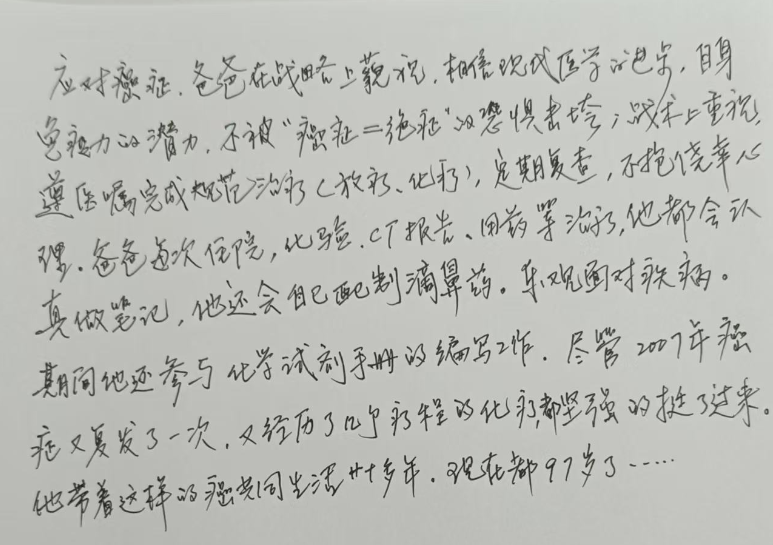 应对癌症，爸爸在战略上藐视，相信现代医学的进步，自身
免疫力的潜力，不被“癌症=绝症”的恐惧击垮；战术上重视，
遵医嘱完成规范治疗（放疗、化疗），定期复查，不抱侥幸心
理。爸爸每次住院，化验、CT报告、用药等治疗，他都会认
真做笔记，他还会自己配制滴鼻药。乐观面对疾病。
期间他还参与化学试剂手册的编写工作。尽管2007年癌
症又复发了一次，又经历了几个疗程的化疗，都坚强的挺了过来。
他带着这样的癌共同生活廿十多年，现在都97岁了……